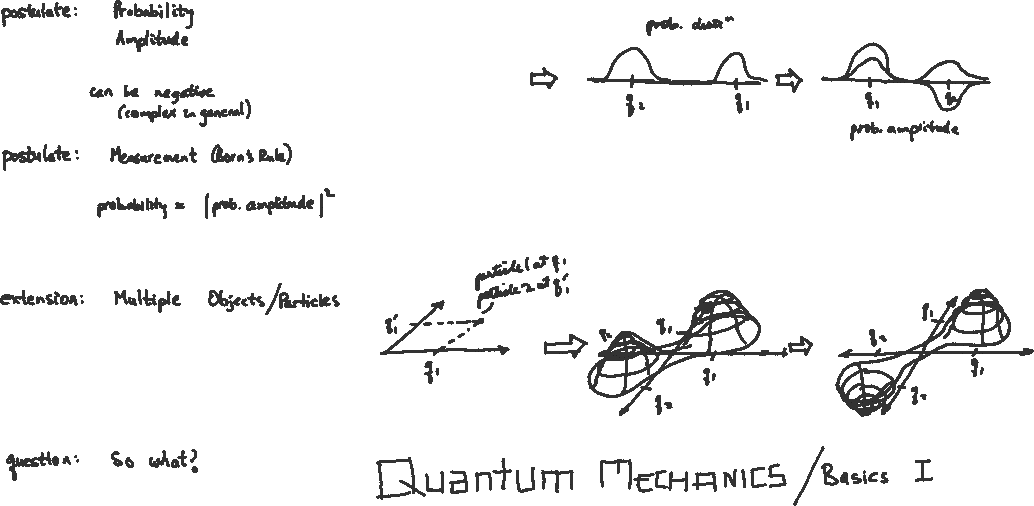 postulate: Probability
Amplitude
can be negative
(complex in general)
prob. distrⁿ
q₂ q₁
q₁ q₂
prob. amplitude
postulate: Measurement (Born's Rule)
probability = |prob. amplitude|²
extension: Multiple Objects/Particles
particle 1 at q₁
particle 2 at q₁'
q₁'
q₁
q₂ q₁
q₁
q₂
q₁
q₂
q₁
q₂
question: So what?
Quantum Mechanics/Basics I